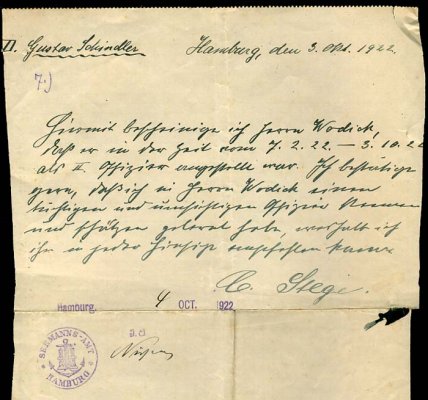 D. Gustav Schindler Hamburg, den 3. Okt. 1922.
7.)
Hiermit bescheinige ich Herrn Wodick,
daß er in der Zeit vom 7. 2. 22. – 3. 10. 22
als II Offizier angestellt war. Ich bestätige
gern, daß ich in Herrn Wodick einen
tüchtigen und umsichtigen Offizier kennen
und schätzen gelernt habe, weshalb ich
ihn in jeder Hinsicht empfehlen kann.
C. Stege.
Hamburg, 4 OCT. 1922
SEEMANNS-AMT HAMBURG